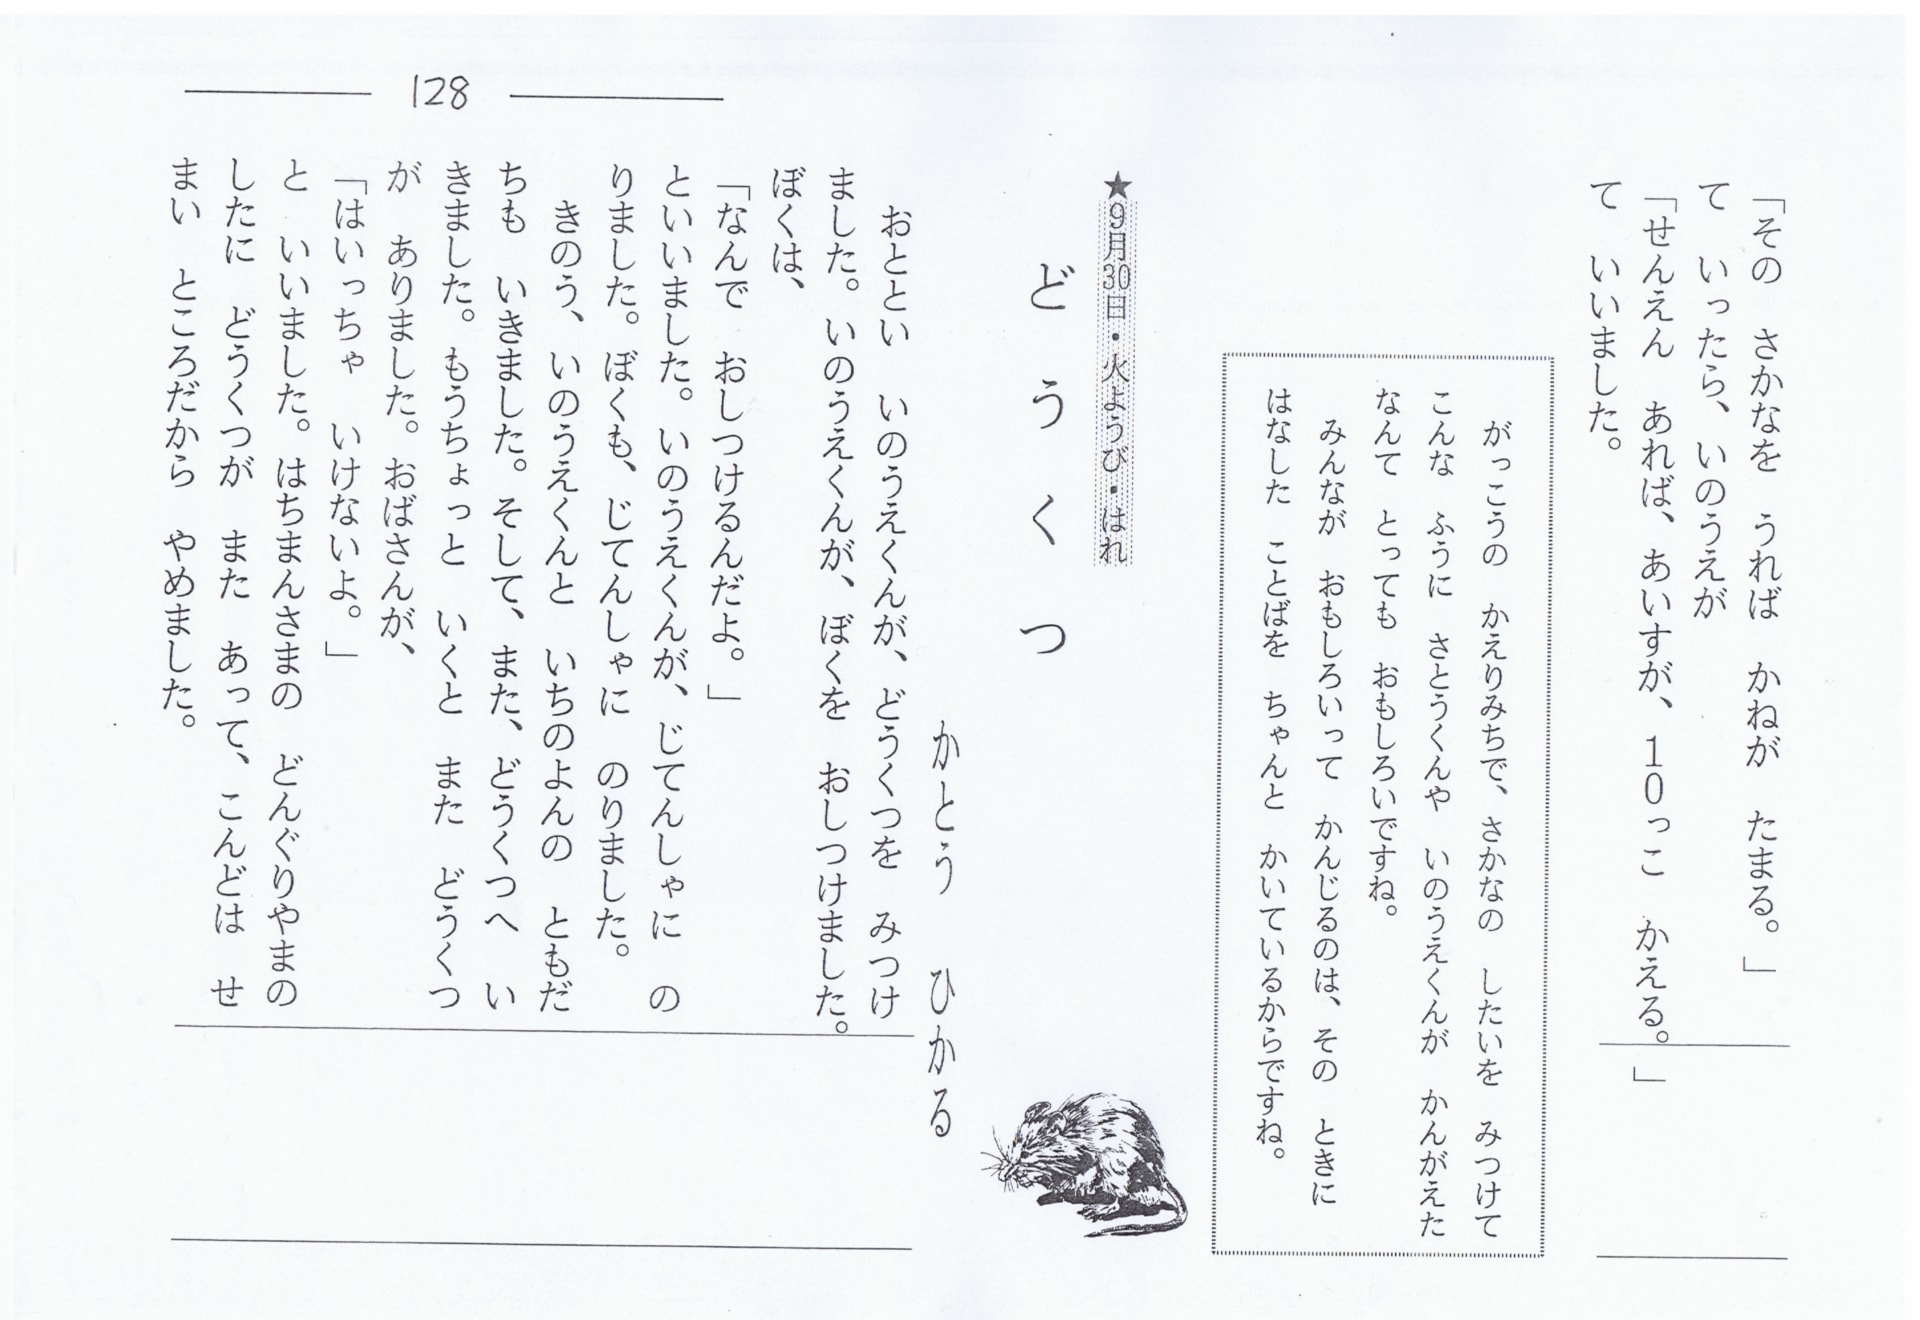 「その　さかなを　うれば　かねが　たまる。」
て　いったら、いのうえが
「せんえん　あれば、あいすが、10っこ　かえる。」
て　いいました。
がっこうの　かえりみちで、さかなの　したいを　みつけて
こんな　ふうに　さとうくんや　いのうえくんが　かんがえた
なんて　とっても　おもしろいですね。
みんなが　おもしろいって　かんじるのは、その　ときに
はなした　ことばを　ちゃんと　かいているからですね。
★9月30日・火ようび・はれ
どうくつ
かとう　ひかる
おととい　いのうえくんが、どうくつを　みつけ
ました。いのうえくんが、ぼくを　おしつけました。
ぼくは、
「なんで　おしつけるんだよ。」
といいました。いのうえくんが、じてんしゃに　の
りました。ぼくも、じてんしゃに　のりました。
きのう、いのうえくんと　いちのよんの　ともだ
ちも　いきました。そして、また、どうくつへ　い
きました。もうちょっと　いくと　また　どうくつ
が　ありました。おばさんが、
「はいっちゃ　いけないよ。」
と　いいました。はちまんさまの　どんぐりやまの
したに　どうくつが　また　あって、こんどは　せ
まい　ところだから　やめました。
128